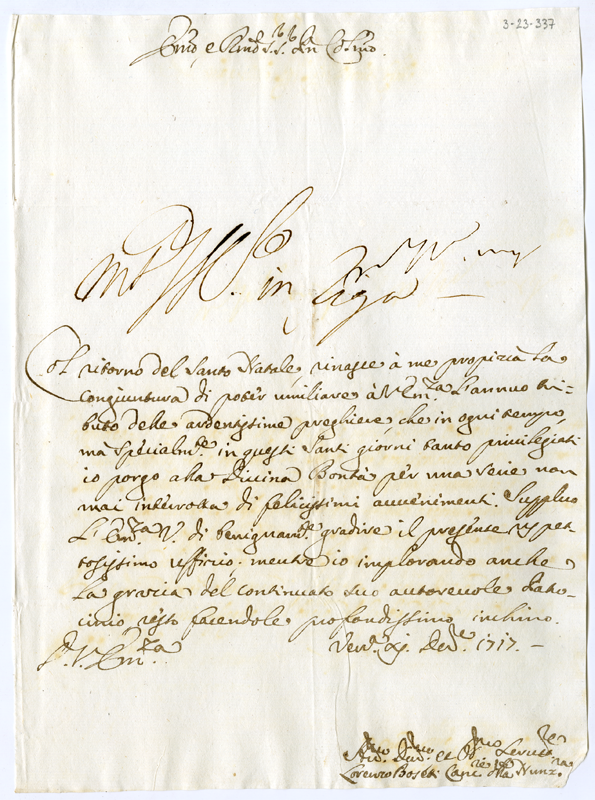 3-23-337
Em̃o e Rmo Sig.r Sig.r Pron Col.mo
Col ritorno del Santo Natale rinasce à me propizia la
Congiuntura di poter umiliare à V. Em.za l'annuo tri=
buto delle ardentissime preghiere che in ogni tempo,
mà specialm.te in questi Santi giorni tanto privilegiati
io porgo alla Divina Bontà per una serie non
mai interrotta di felicissimi avvenimenti. Supplico
L'Em.za V. di benignam.te gradire il presente rispet
tosissimo ufficio. mentre io implorando anche
la grazia del continuato suo autorevole Patro-
cinio resto facendole profondissimo inchino.
Di V. Em.za Ven.a xj. Dec.e 1717.
Um̃o Dev.mo et Obl.mo Servit.re
Lorenzo Canc.re della Nunz.ra